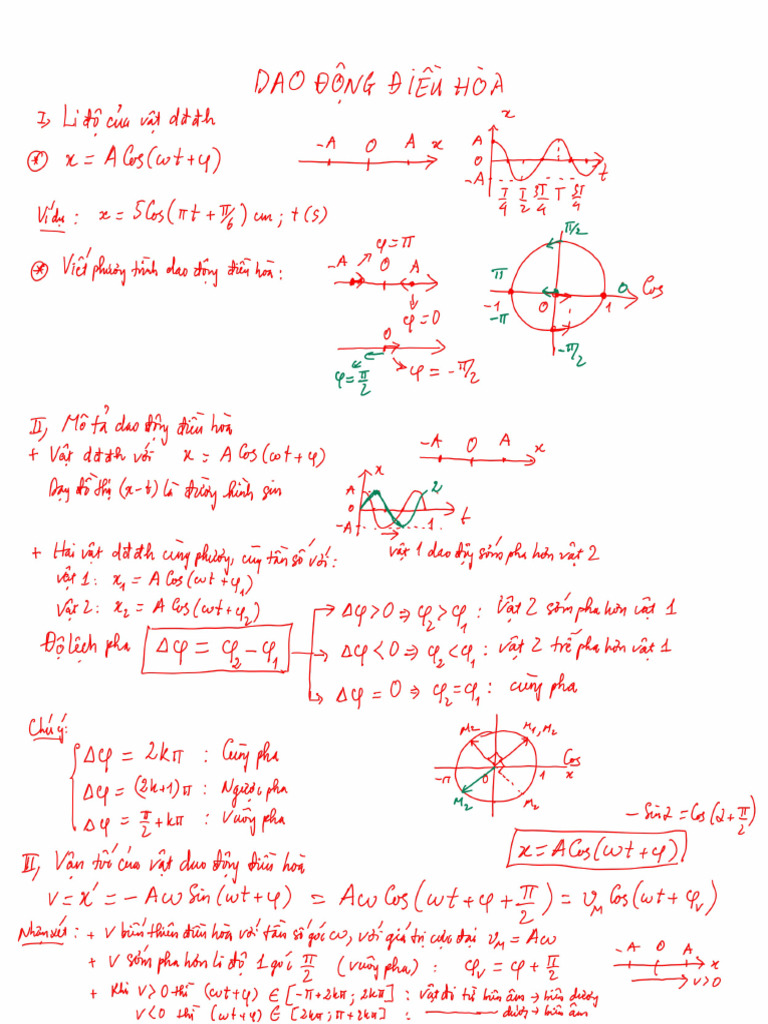 DAO ĐỘNG ĐIỀU HÒA
I, Li độ của vật dđđh
* x = A Cos(ωt + φ)
-A O A x
x A O -A T/4 T/2 3T/4 T 5T/4 t
Ví dụ: x = 5Cos(πt + π/6) cm; t(s)
* Viết phương trình dao động điều hòa:
φ = π
-A O A
φ = 0
O
φ = π/2 φ = -π/2
π/2 π -1 -π O 1 0 Cos -π/2
II, Mô tả dao động điều hòa
+ Vật dđđh với x = A Cos(ωt + φ)
-A O A x
Dạy đồ thị (x-t) là đường hình sin
x A O -A 2 1 t
+ Hai vật dđđh cùng phương, cùng tần số với:
vật 1 dao động sớm pha hơn vật 2
vật 1: x₁ = A Cos(ωt + φ₁)
Vật 2: x₂ = A Cos(ωt + φ₂)
Độ lệch pha Δφ = φ₂ - φ₁
Δφ > 0 ⇒ φ₂ > φ₁ : Vật 2 sớm pha hơn vật 1
Δφ < 0 ⇒ φ₂ < φ₁ : vật 2 trễ pha hơn vật 1
Δφ = 0 ⇒ φ₂ = φ₁ : cùng pha
Chú ý:
Δφ = 2kπ : Cùng pha
Δφ = (2k+1)π : Ngược pha
Δφ = π/2 + kπ : Vuông pha
M2 M1, M2 Cos x -π O 1 M2 M2
- Sin2 = Cos(2 + π/2)
x = A Cos(ωt + φ)
III, Vận tốc của vật dao động điều hòa
v = x' = -Aω Sin(ωt + φ) = Aω Cos(ωt + φ + π/2) = v_M Cos(ωt + φ_v)
Nhận xét: + v biến thiên điều hòa với tần số góc ω, với giá trị cực đại v_M = Aω
+ v sớm pha hơn li độ 1 góc π/2 (vuông pha) : φ_v = φ + π/2
-A O A x v>0
+ Khi v > 0 thì (ωt+φ) ∈ [-π + 2kπ ; 2kπ] : vật đi từ biên âm → biên dương
v < 0 thì (ωt+φ) ∈ [2kπ ; π + 2kπ] : dương → biên âm